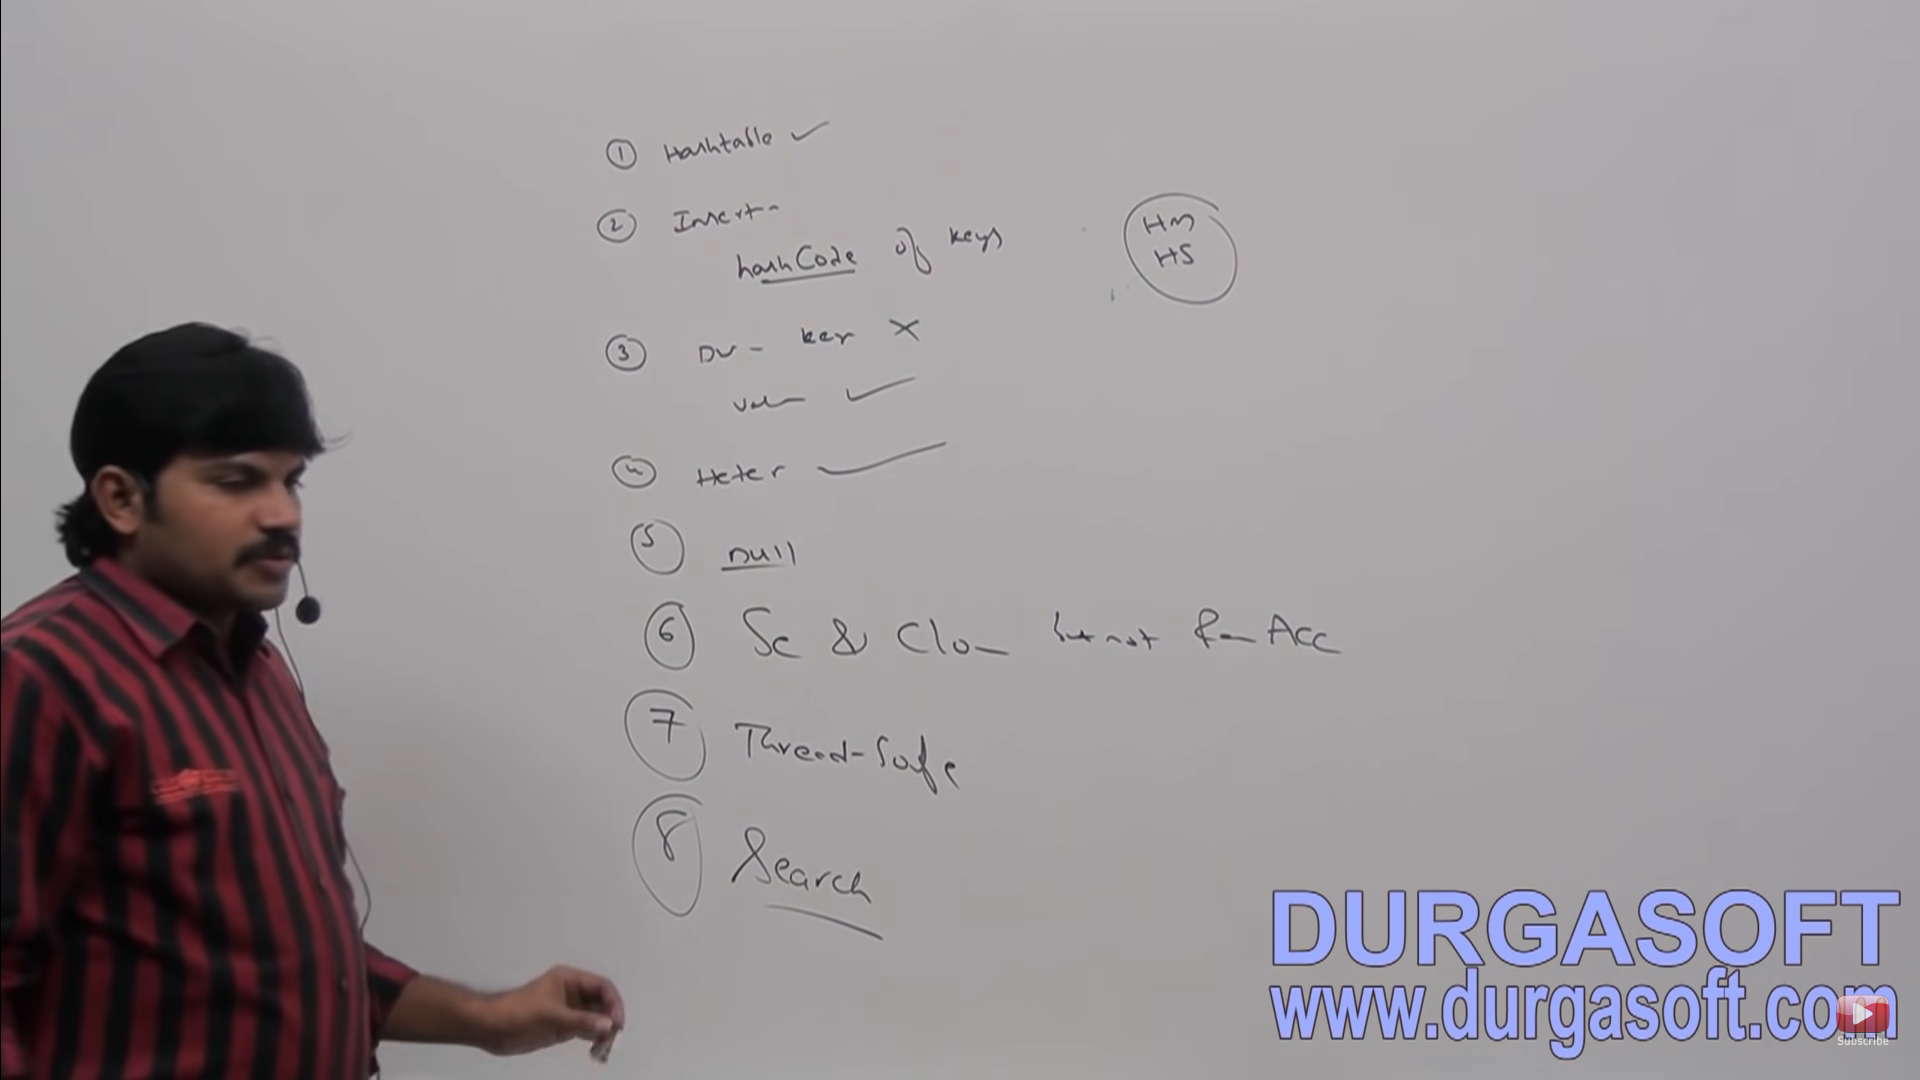 ① Hashtable ✓
② Insert-
hashCode of keys
HM
HS
③ Du- key ✗
Val ✓
④ Heter ✓
⑤ null
⑥ Se & Clo but not Ran Acc
⑦ Thread-Safe
⑧ Search
DURGASOFT
www.durgasoft.com
Subscribe